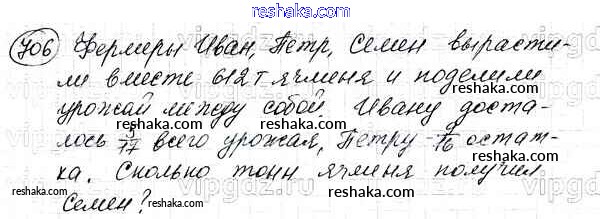 reshaka.com
706 Фермеры Иван, Петр, Семен вырасти-
ли вместе 612 т ячменя и поделили
урожай между собой. Ивану доста-
лось 3/17 всего урожая, Петру - /16 остат-
ка. Сколько тонн ячменя получил
Семен?
reshaka.com
reshaka.com
reshaka.com
reshaka.com
reshaka.com
reshaka.com